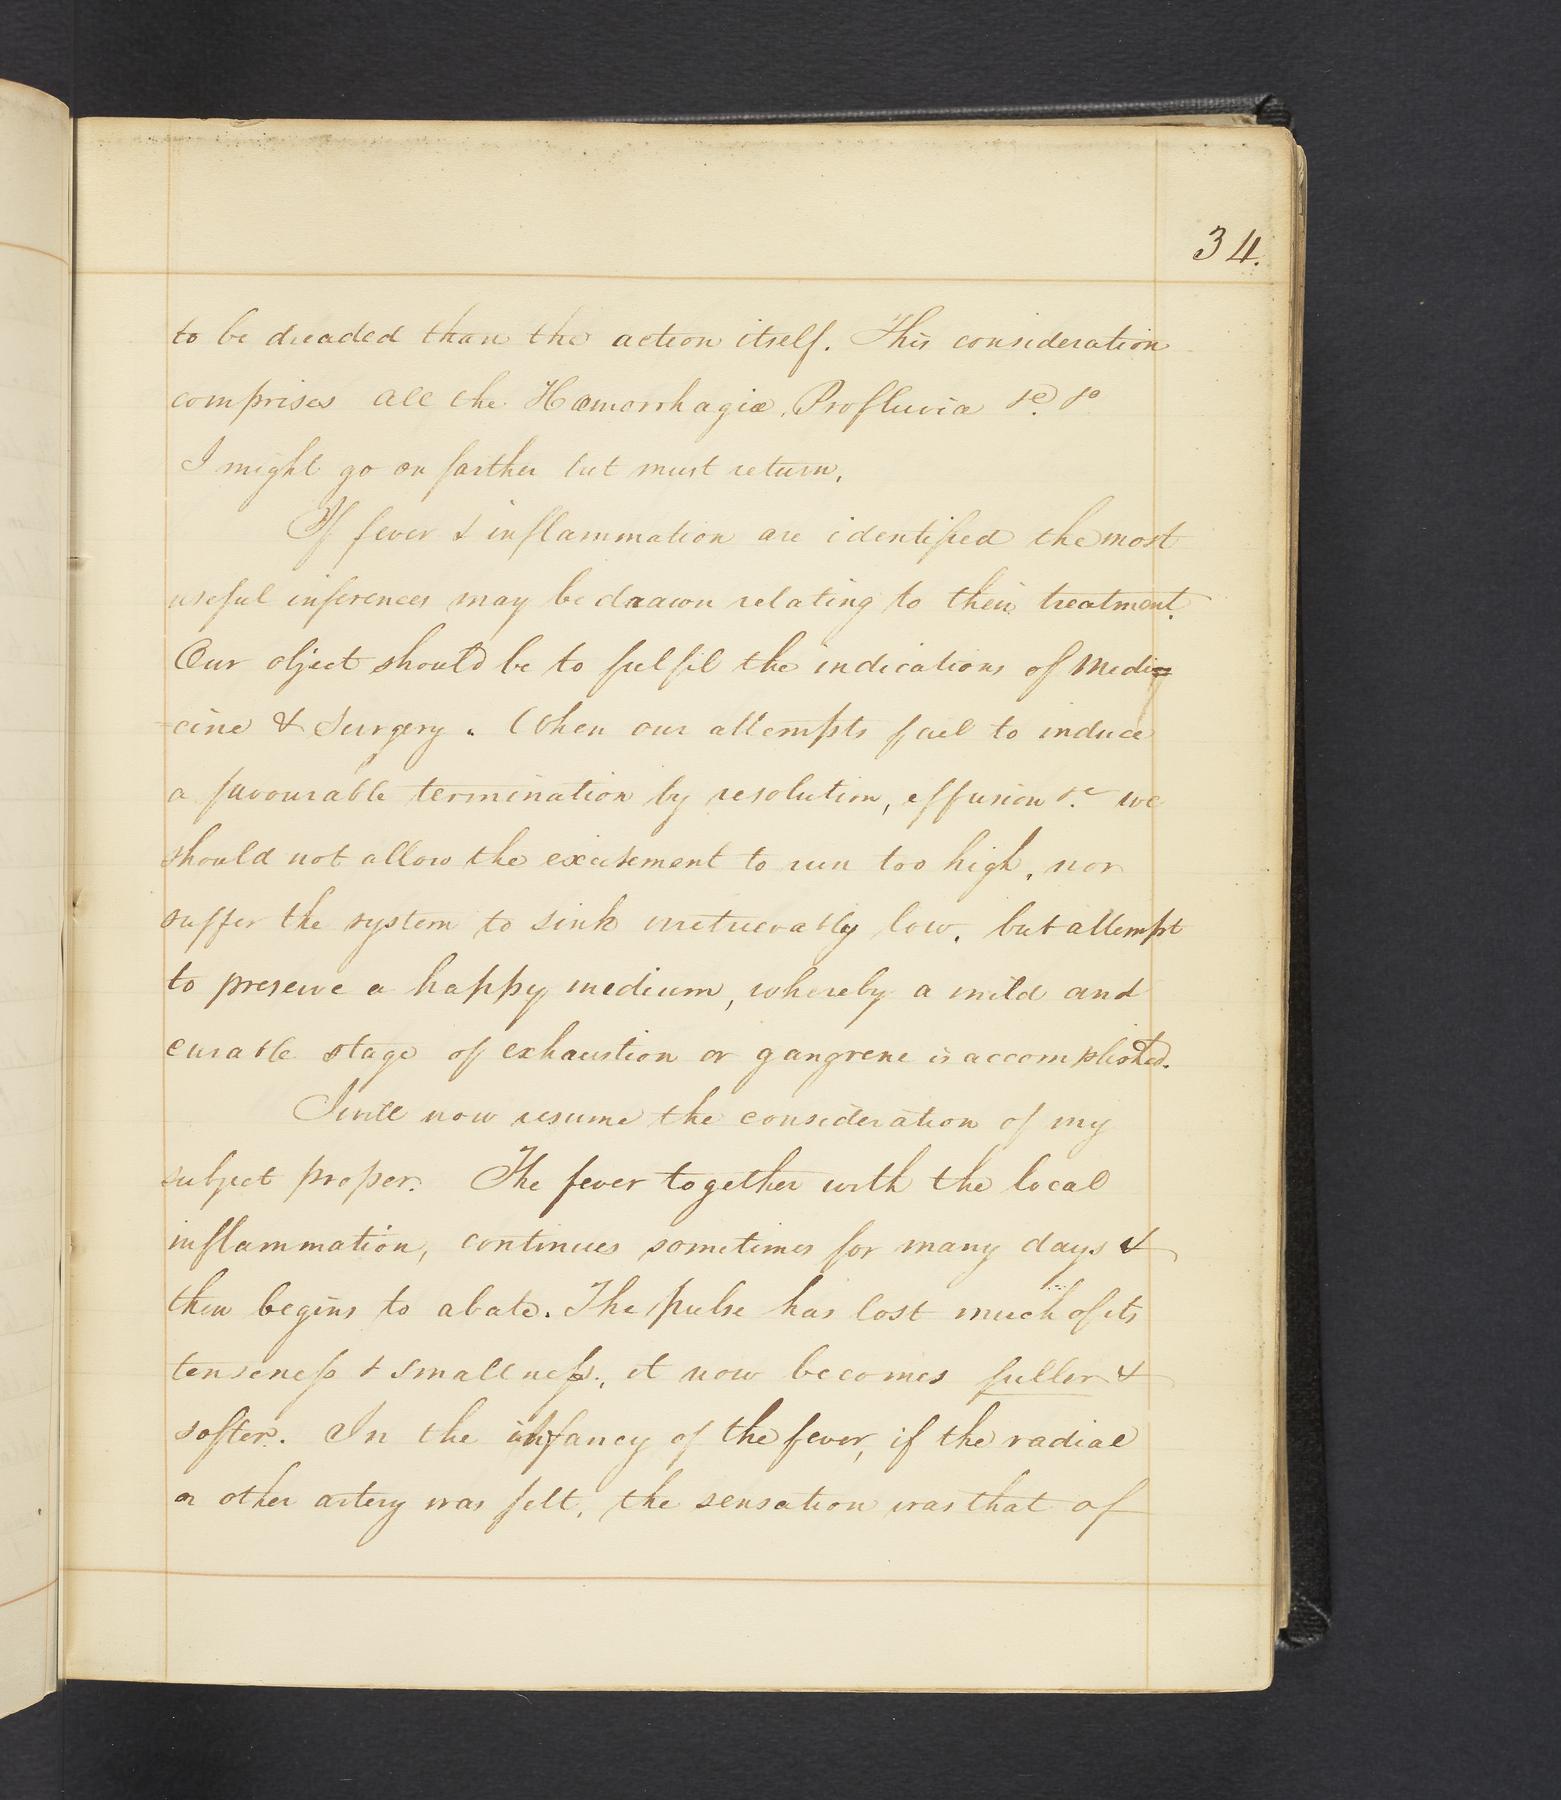 34.
to be dreaded than the action itself. This consideration
comprises all the Hæmorrhagiæ, Profluvia &c. &c
I might go on farther but must return.
If fever & inflammation are identified the most
useful inferences may be draawn relating to their treatment.
Our object should be to fulfil the indications of Medi=
=cine & Surgery. When our attempts fail to induce
a favourable termination by resolution, effusion &c. we
should not allow the excitement to run too high, nor
suffer the system to sink irretrievably low, but attempt
to preserve a happy medium, whereby a mild and
curable stage of exhaustion or gangrene is accomplished.
I will now resume the consideration of my
subject proper. The fever together with the local
inflammation, continues sometimes for many days &
then begins to abate. The pulse has lost much of its
tenseness & smallness, it now becomes fuller &
softer. In the infancy of the fever, if the radial
or other artery was felt, the sensation was that of